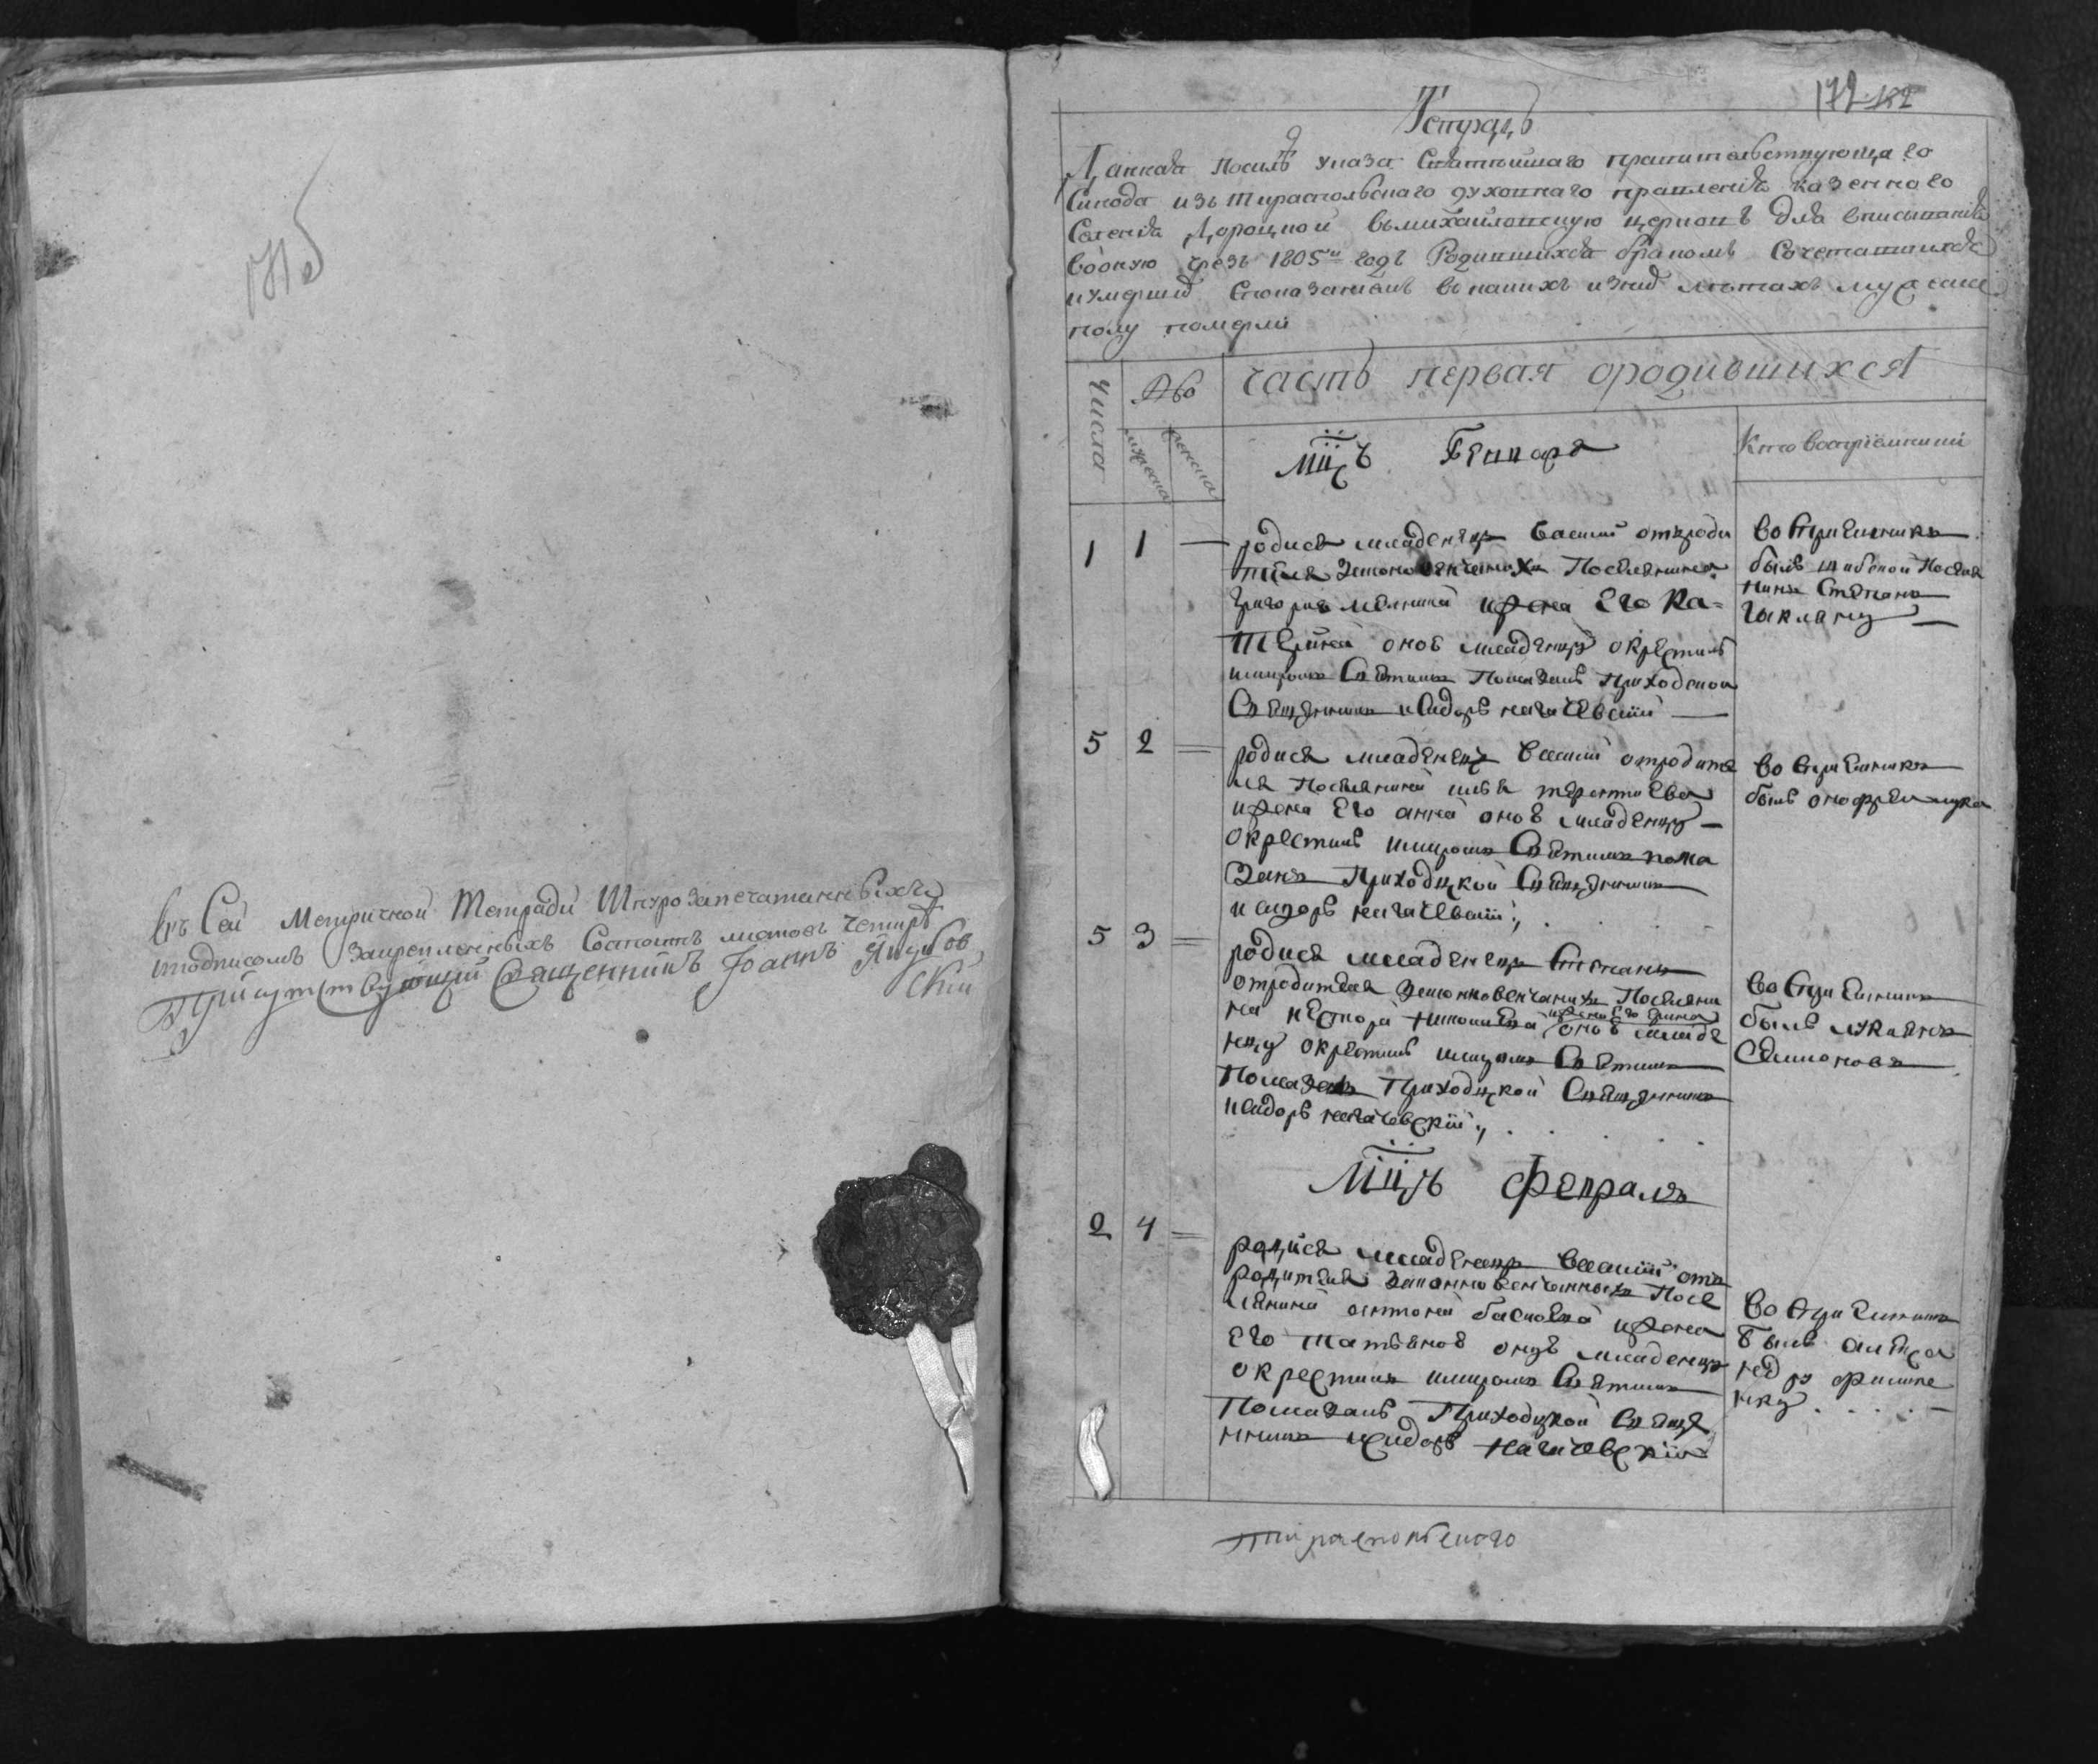 въ Сей Метричной Тетради Шнурозапечатанныхъ
подписомъ Закрепленныхъ Состоитъ листовъ четыре
Присутствующий Священникъ Иоаннъ Якубов
ский
172 182
Тетрадь
Данная посилѣ указа Святѣйшаго правительствующаго
Синода изъ Тираспольскаго духовнаго правления казенного
Селения Дороцкой въ михайловскую церковъ для вписывания
вооную чрезъ 1805й годъ Родившихся бракомъ Сочетавшихся
иумерших Спознаниемъ
полу померли
Числа
мужеска
женска
часть первая ородившихся
Кто Восприемники
Мцъ Генваря
1 1 — родися младенецъ Василий отъ роди
теля Законновенчаных Поселянина
Григория мелника ижена Его Ка=
терина оноъ младенца окрестилъ
имиромъ Святимъ Помазалъ Приходской
Священникъ исидоръ начаевский —
Восприемникъ
былъ Поселя
нинъ Степанъ
5 2 = родися младенецъ Василий отродите
ля Поселянина терентиева
ижена Его анна оноъ младенца —
окрестилъ имиромъ Святимъ пома
залъ Приходской Священникъ
исидоръ начаевский;
Восприемникъ
былъ
5 3 = родися младенецъ Степанъ
отродителя Законновенчаных Поселяни
на нестора николаева ижена Его ирина оноъ младе
нца окрестилъ имиромъ Святимъ
Помазалъ Приходской Священникъ
исидоръ начаевский;
Восприемникъ
былъ лукиянъ
Симоновъ
Мцъ Февраль
2 4 = родися младенецъ Василий отъ
родителя Законновенчанных Посе
лянина антона ижена
Его татьяноъ оноъ младенца
окрестилъ имиромъ Святимъ
Помазалъ Приходской Свяще
нникъ исидоръ начаевский
Восприемникъ
Былъ алекса
ндръ филипе
нку
тираспольского